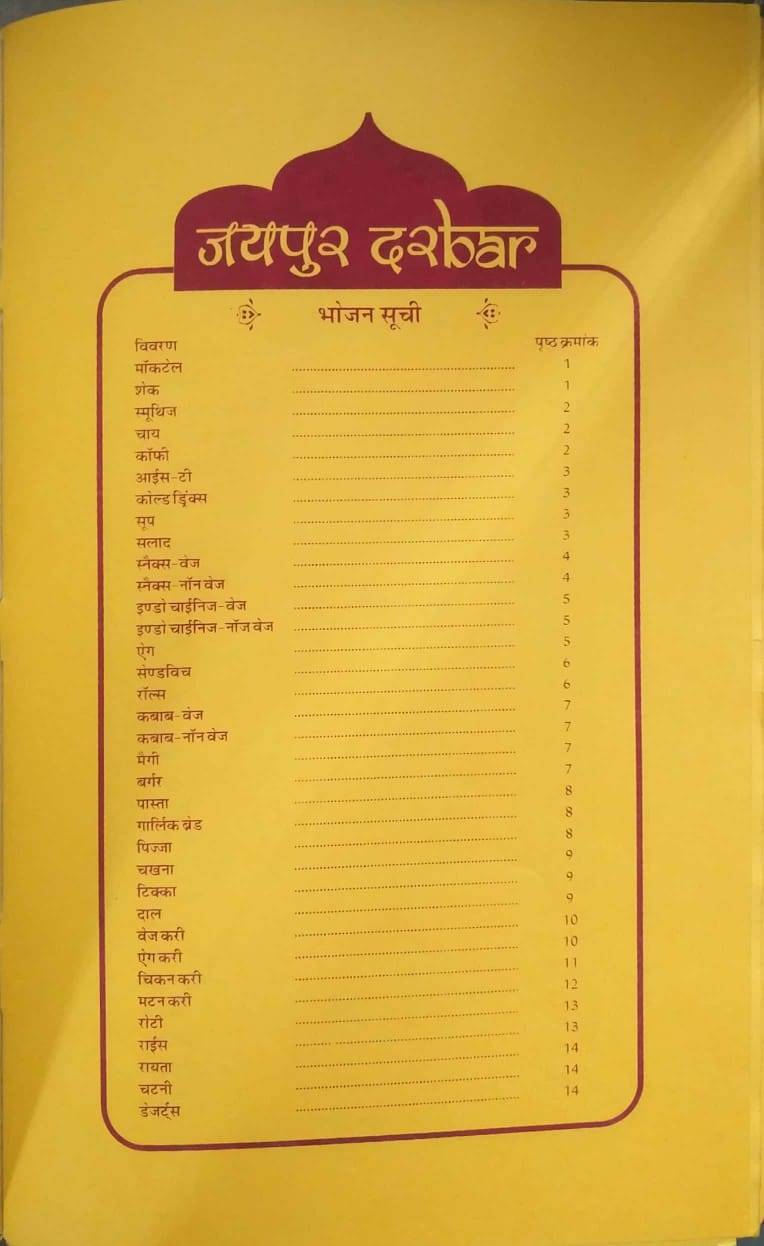 जयपुर दरbar
भोजन सूची
विवरण पृष्ठ क्रमांक
मॉकटेल ........ 1
शेक ........ 1
स्मूथिज ........ 2
चाय ........ 2
कॉफी ........ 2
आईस-टी ........ 3
कोल्ड ड्रिंक्स ........ 3
सूप ........ 3
सलाद ........ 3
स्नैक्स-वेज ........ 4
स्नैक्स-नॉन वेज ........ 4
इण्डो चाईनिज-वेज ........ 5
इण्डो चाईनिज-नॉज वेज ........ 5
ऐग ........ 5
सेण्डविच ........ 6
रॉल्स ........ 6
कबाब-वेज ........ 7
कबाब-नॉन वेज ........ 7
मैगी ........ 7
बर्गर ........ 7
पास्ता ........ 8
गार्लिक ब्रेड ........ 8
पिज्जा ........ 8
चखना ........ 9
टिक्का ........ 9
दाल ........ 9
वेज करी ........ 10
ऐग करी ........ 10
चिकन करी ........ 11
मटन करी ........ 12
रोटी ........ 13
राईस ........ 13
रायता ........ 14
चटनी ........ 14
डेजर्ट्स ........ 14